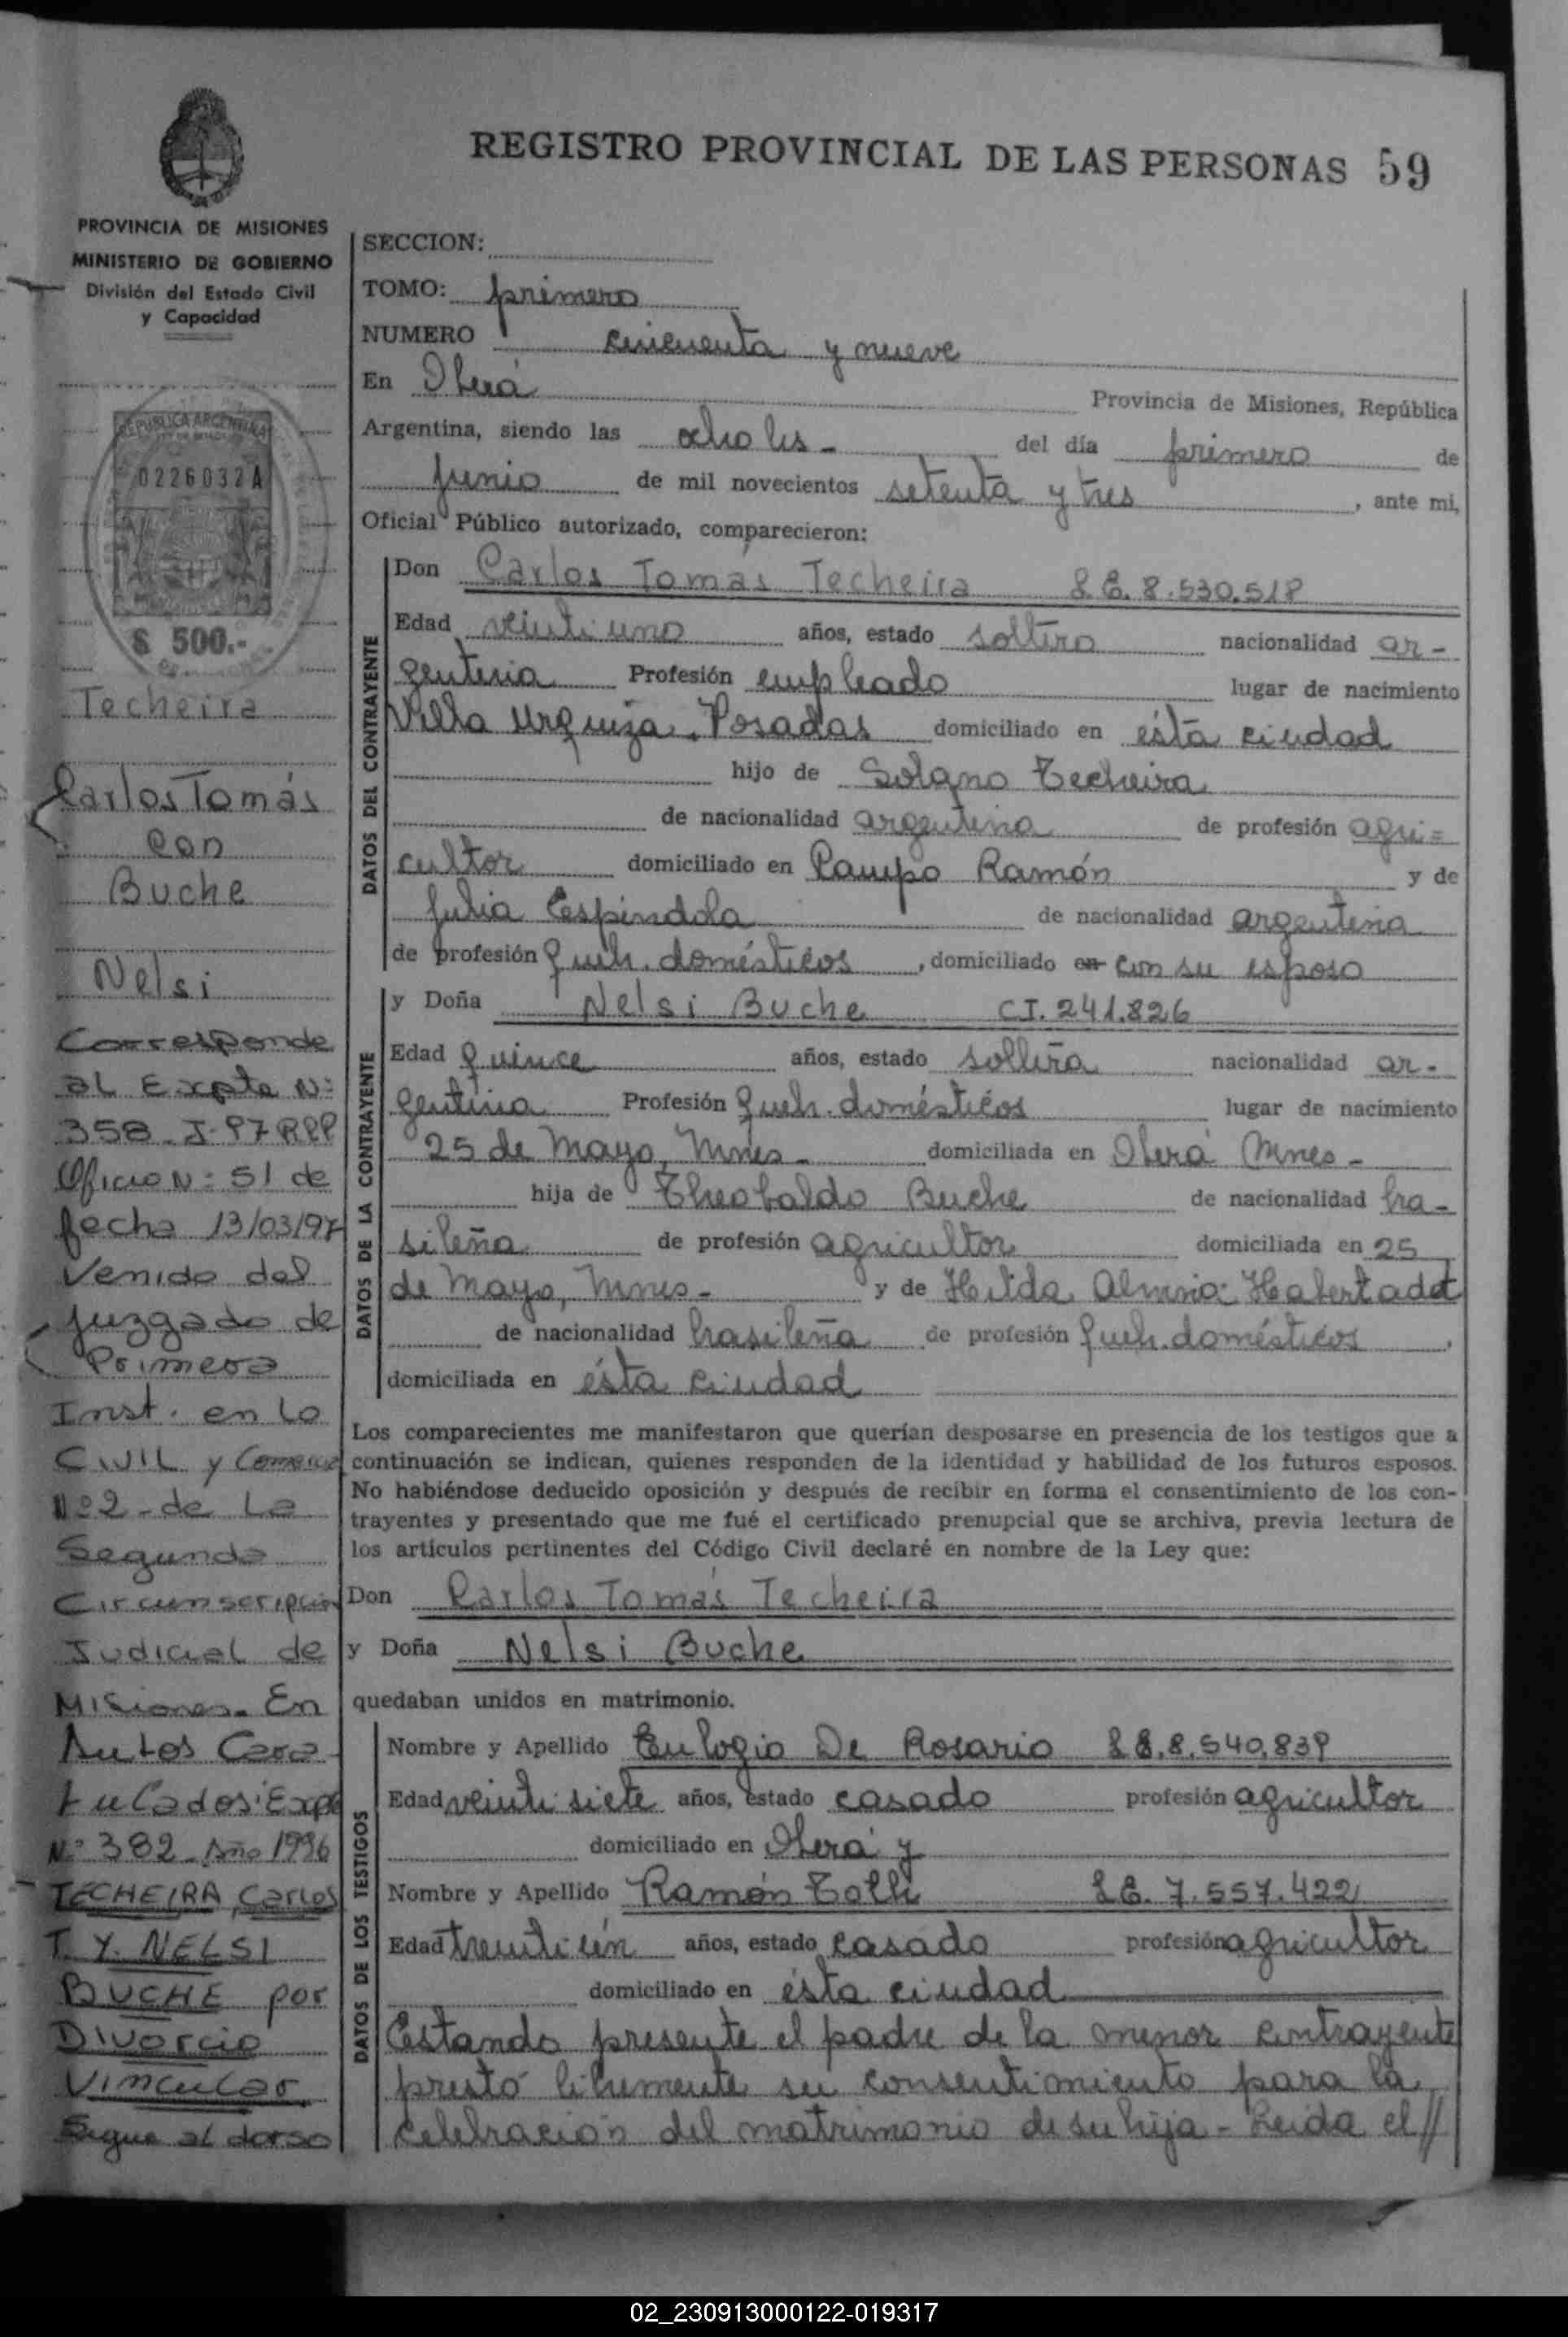 REGISTRO PROVINCIAL DE LAS PERSONAS 59
PROVINCIA DE MISIONES
MINISTERIO DE GOBIERNO
División del Estado Civil
y Capacidad
REPUBLICA ARGENTINA
0226032A
$ 500.-
Techeira
Carlos Tomás
con
Buche
Nelsi
Corresponde
al Expte Nº
358-J-97 RPP
Oficio Nº 51 de
fecha 13/03/97
Venido del
Juzgado de
Primera
Inst. en lo
CIVIL y Comercial
Nº 2 - de La
Segunda
Circunscripción
Judicial de
Misiones. En
Autos Cara
tulados: Expte
Nº 382 - Año 1996
TECHEIRA, Carlos
T. Y. NELSI
BUCHE por
Divorcio
Vincular
Segue al dorso
SECCION:
TOMO: primero
NUMERO cincuenta y nueve
En Oberá Provincia de Misiones, República
Argentina, siendo las ocho hs - del día primero de
junio de mil novecientos setenta y tres, ante mi,
Oficial Público autorizado, comparecieron:
DATOS DEL CONTRAYENTE
Don Carlos Tomás Techeira L.E. 8.530.518
Edad veintiuno años, estado soltero nacionalidad ar-
gentina Profesión empleado lugar de nacimiento
Villa Urquiza. Posadas domiciliado en ésta ciudad
hijo de Solano Techeira
de nacionalidad argentina de profesión agri=
cultor domiciliado en Campo Ramón y de
Julia Espindola de nacionalidad argentina
de profesión queh. domésticos, domiciliado en con su esposo
DATOS DE LA CONTRAYENTE
y Doña Nelsi Buche CI. 241.826
Edad quince años, estado soltera nacionalidad ar-
gentina Profesión queh. domésticos lugar de nacimiento
25 de Mayo, Mnes- domiciliada en Oberá Mnes-
hija de Theobaldo Buche de nacionalidad bra-
sileña de profesión agricultor domiciliada en 25
de Mayo, Mnes- y de Hilda Almira
de nacionalidad brasileña de profesión queh. domésticos,
domiciliada en ésta ciudad
Los comparecientes me manifestaron que querían desposarse en presencia de los testigos que a
continuación se indican, quienes responden de la identidad y habilidad de los futuros esposos.
No habiéndose deducido oposición y después de recibir en forma el consentimiento de los con-
trayentes y presentado que me fué el certificado prenupcial que se archiva, previa lectura de
los artículos pertinentes del Código Civil declaré en nombre de la Ley que:
Don Carlos Tomás Techeira
y Doña Nelsi Buche
quedaban unidos en matrimonio.
DATOS DE LOS TESTIGOS
Nombre y Apellido Eulogio De Rosario L.E. 8.540.839
Edad veintisiete años, estado casado profesión agricultor
domiciliado en Oberá y
Nombre y Apellido Ramón L.E. 7.557.422
Edad treintiún años, estado casado profesión agricultor
domiciliado en ésta ciudad
Estando presente el padre de la menor contrayente
prestó libremente su consentimiento para la
celebración del matrimonio de su hija - Leida el //
02_230913000122-019317